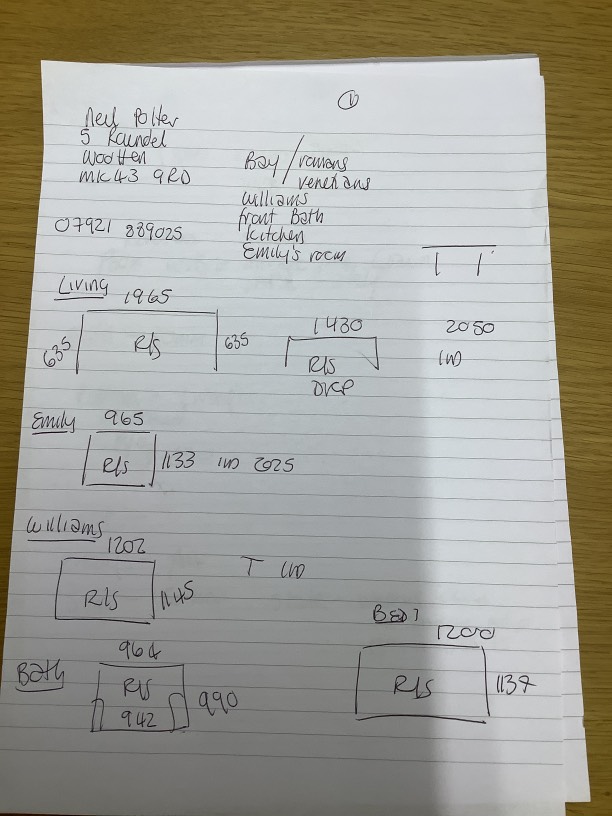 ①
Neil Potter
5 Roundel
Wootten
MK43 9RD
07921 889025
Bay / romans
venetians
Williams
front Bath
kitchen
Emily's room
Living
1965
635 R/S 635
1430
R/S
2050
Emily 965
R/S 1133 2025
Williams
1202
R/S 1145
T
Bath
964
R/S
942 990
BED 1
1200
R/S 1137